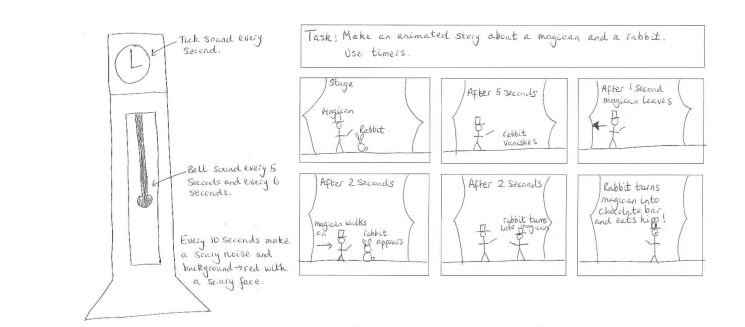 Tick sound every
second.
Bell sound every 5
seconds and every 6
seconds.
Every 10 seconds make
a scary noise and
background → red with
a scary face.
Task: Make an animated story about a magican and a rabbit.
Use timers.
Stage
Magican
Rabbit
After 5 seconds
rabbit
vanishes
After 1 second
magican leaves
After 2 seconds
magican walks
on
rabbit
appears
After 2 seconds
rabbit turns
into magican
Rabbit turns
magican into
chocolate bar
and eats him!